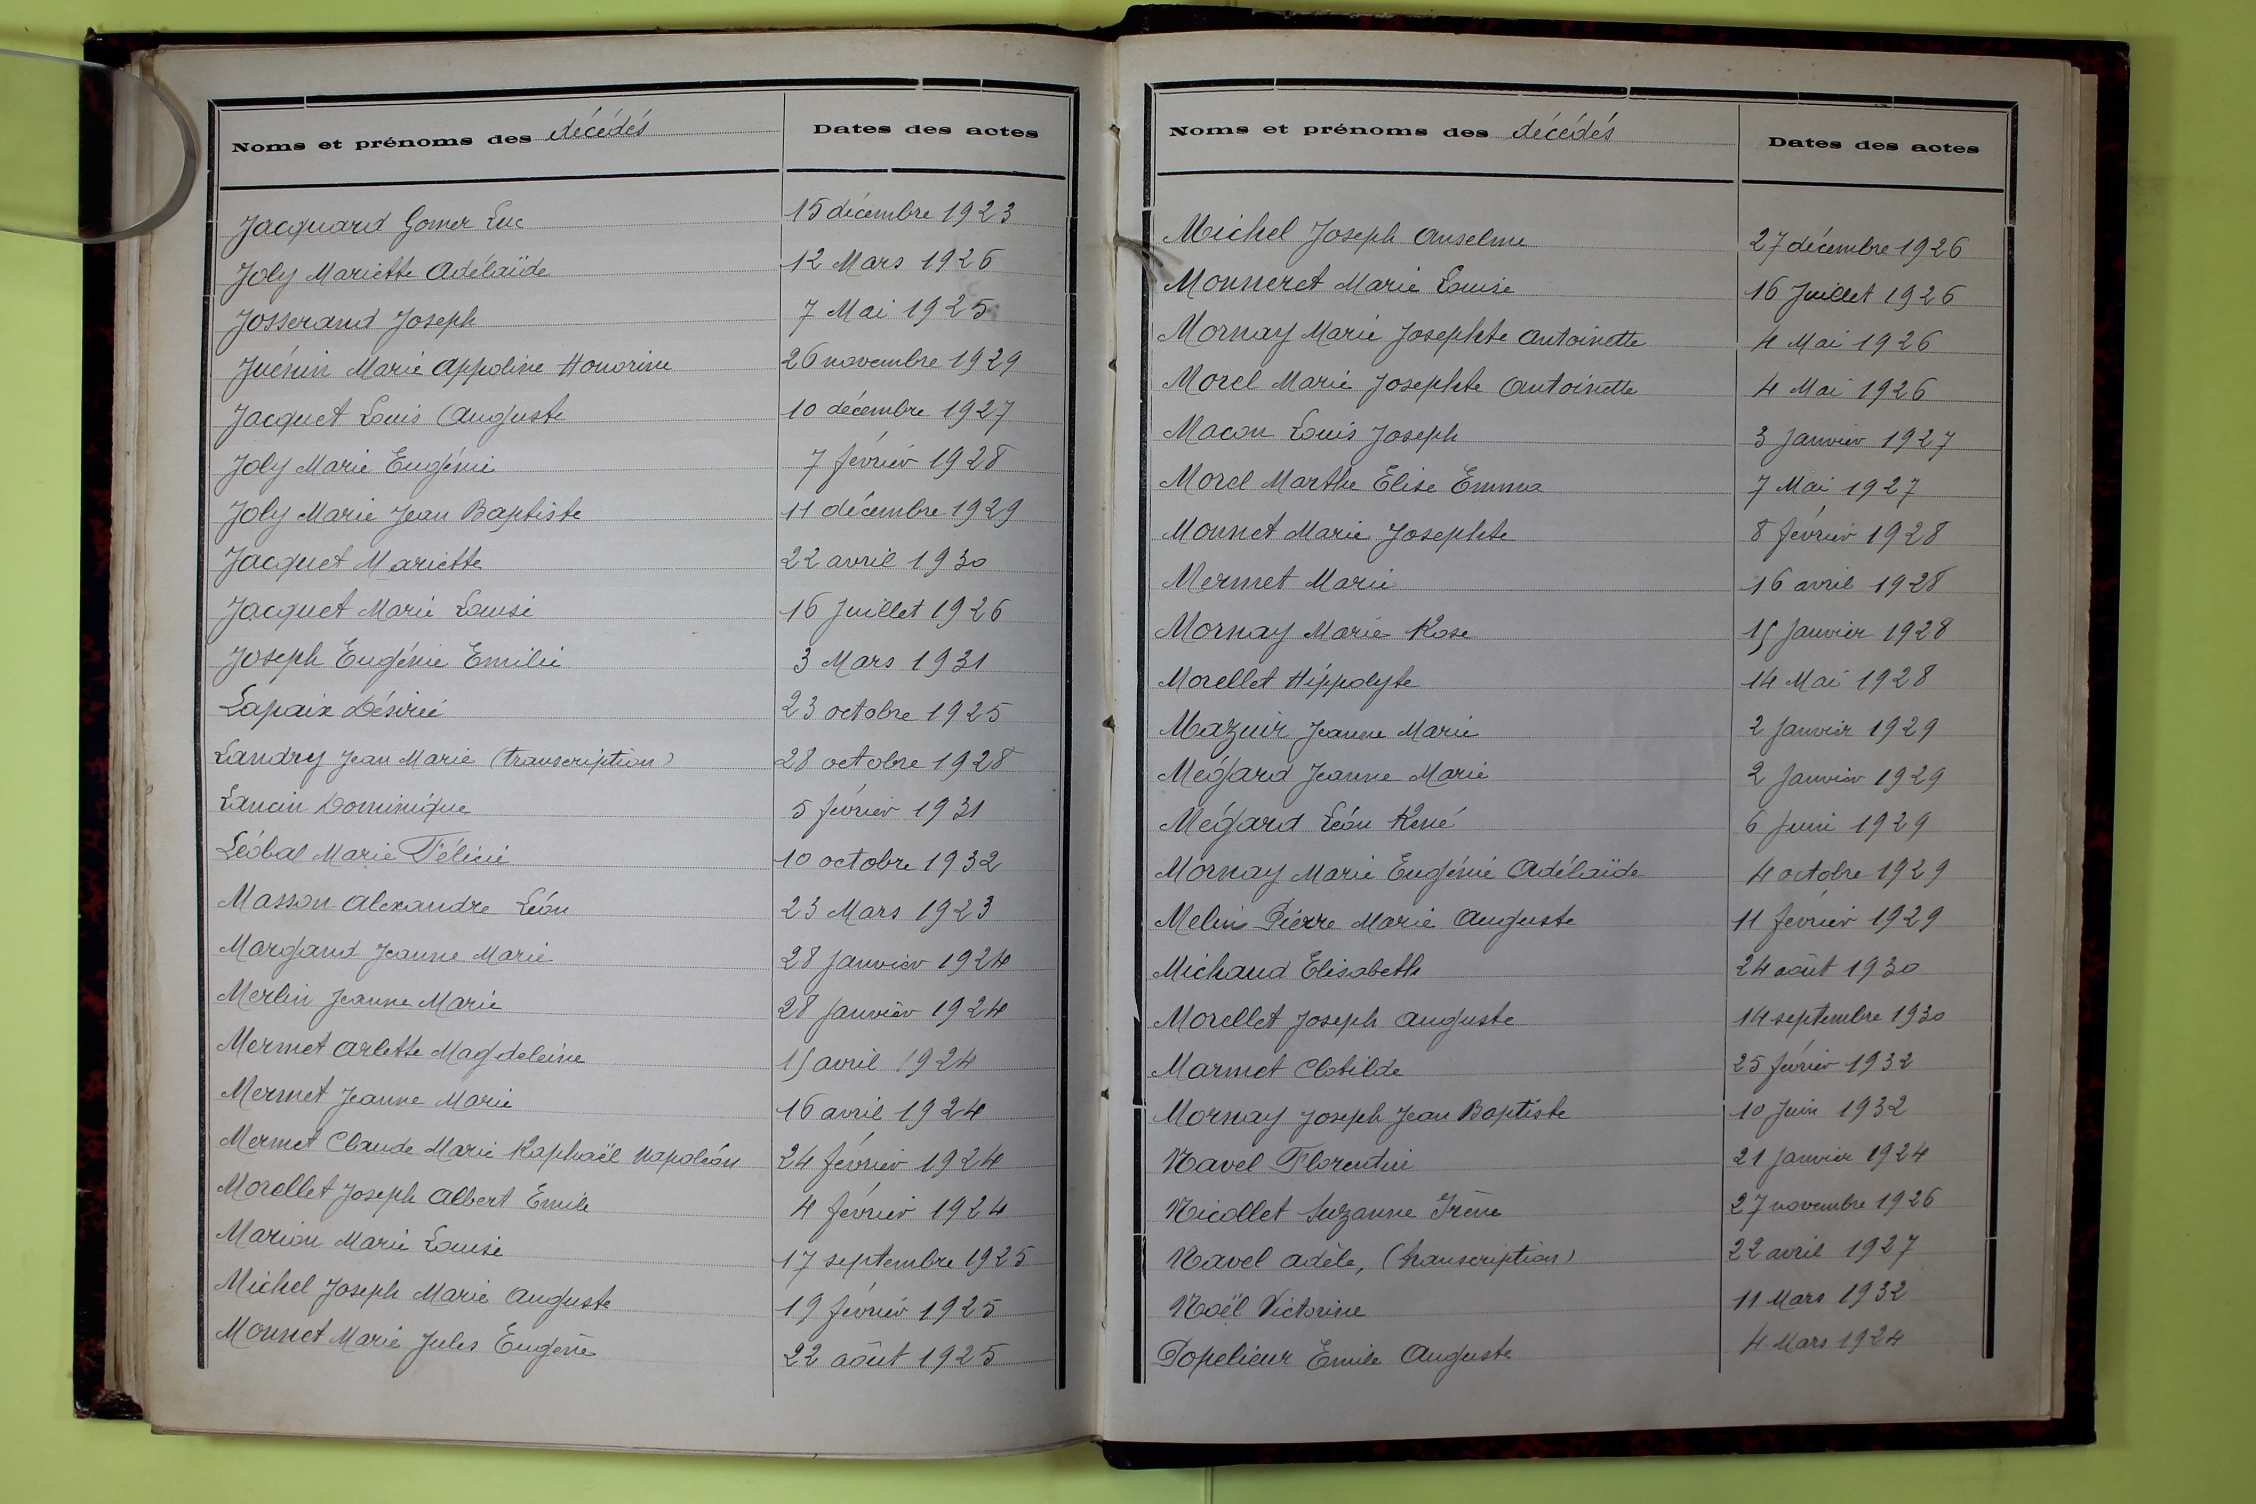 Noms et prénoms des décédés Dates des actes
Jacquard Gomer Luc 15 décembre 1923
Joly Mariette Adélaïde 12 Mars 1926
Josserand Joseph 7 Mai 1925
Juénin Marie Appoline Honorine 26 novembre 1929
Jacquet Louis Auguste 10 décembre 1927
Joly Marie Eugénie 7 février 1928
Joly Marie Jean Baptiste 11 décembre 1929
Jacquet Mariette 22 avril 1930
Jacquet Marie Louise 16 Juillet 1926
Joseph Eugénie Emilie 3 Mars 1931
Lapaix Désirée 23 octobre 1925
Landry Jean Marie (transcription) 28 octobre 1928
Lancin Dominique 5 février 1931
Léobal Marie Félicie 10 octobre 1932
Masson Alexandre Léon 23 Mars 1923
Margand Jeanne Marie 28 Janvier 1924
Merlin Jeanne Marie 28 Janvier 1924
Mermet Arlette Magdeleine 15 avril 1924
Mermet Jeanne Marie 16 avril 1924
Mermet Claude Marie Raphaël Napoléon 24 février 1924
Morellet Joseph Albert Emile 4 février 1924
Marion Marie Louise 17 septembre 1925
Michel Joseph Marie Auguste 19 février 1925
Monnet Marie Jules Eugène 22 août 1925
Noms et prénoms des décédés Dates des actes
Michel Joseph Anselme 27 décembre 1926
Monneret Marie Louise 16 Juillet 1926
Mornay Marie Josephte Antoinette 4 Mai 1926
Morel Marie Josephte Antoinette 4 Mai 1926
Macon Louis Joseph 3 Janvier 1927
Morel Marthe Elise Emma 7 Mai 1927
Monnet Marie Josephte 8 février 1928
Mermet Marie 16 avril 1928
Mornay Marie Rose 15 Janvier 1928
Morellet Hippolyte 14 Mai 1928
Mazuir Jeanne Marie 2 Janvier 1929
Mégard Jeanne Marie 2 Janvier 1929
Mégard Léon René 6 Juin 1929
Mornay Marie Eugénie Adélaïde 4 octobre 1929
Melin Pierre Marie Auguste 11 février 1929
Michaud Elisabeth 24 août 1930
Morellet Joseph Auguste 14 septembre 1930
Marmet Clotilde 25 février 1932
Mornay Joseph Jean Baptiste 10 Juin 1932
Navel Florentin 21 Janvier 1924
Nicollet Suzanne Irène 27 novembre 1926
Navel Adèle, (transcription) 22 avril 1927
Noël Victorine 11 Mars 1932
Popelieur Emile Auguste 4 Mars 1924